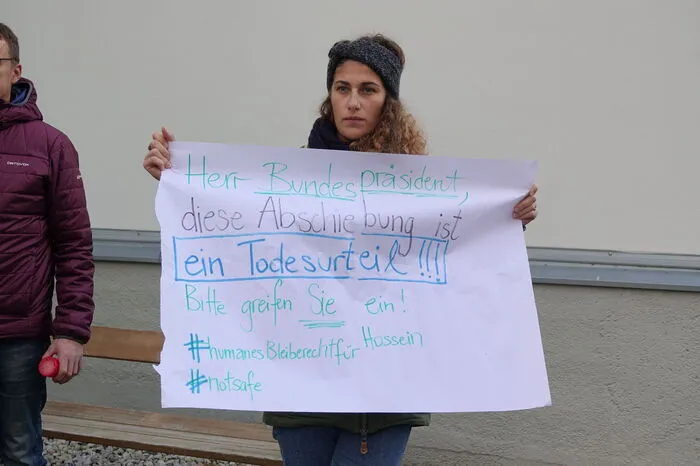 Herr Bundespräsident,
diese Abschiebung ist
ein Todesurteil!!!
Bitte greifen Sie ein!
#humanesBleiberechtfürHussein
#notsafe
ORTOVOX